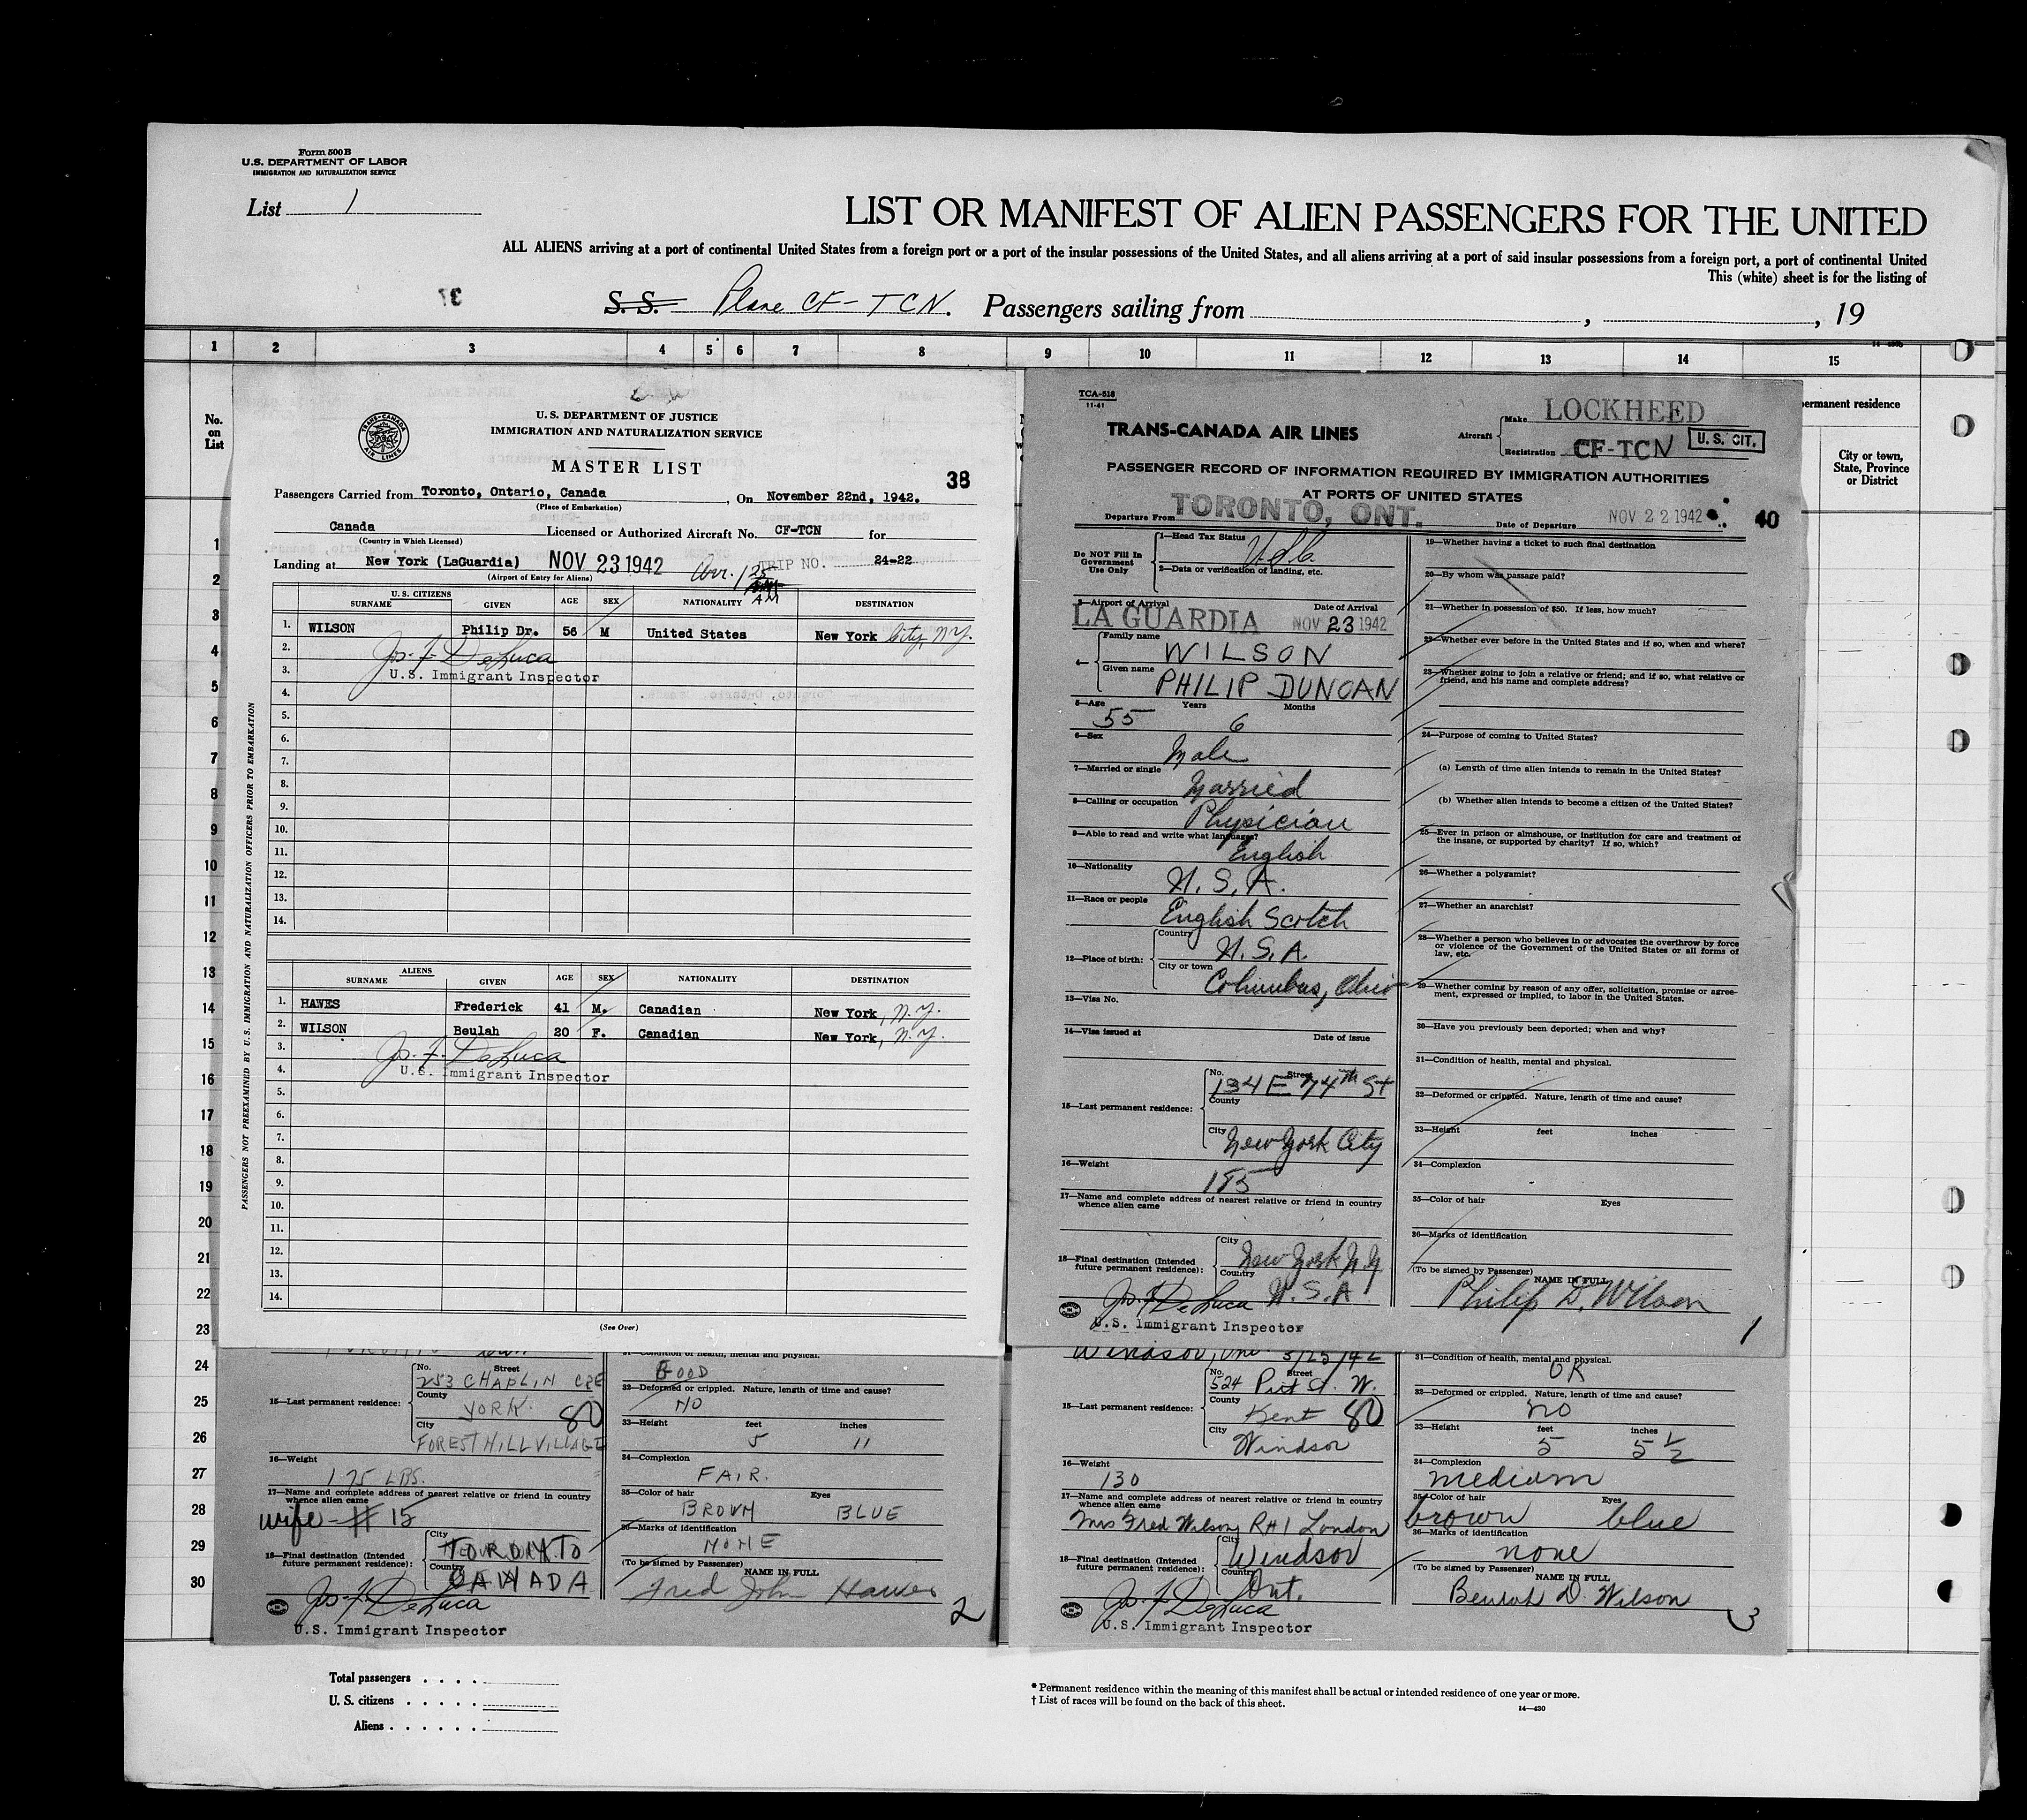 Form 500B
U.S. DEPARTMENT OF LABOR
IMMIGRATION AND NATURALIZATION SERVICE
List 1
LIST OR MANIFEST OF ALIEN PASSENGERS FOR THE UNITED
ALL ALIENS arriving at a port of continental United States from a foreign port or a port of the insular possessions of the United States, and all aliens arriving at a port of said insular possessions from a foreign port, a port of continental United
This (white) sheet is for the listing of
S.S. Plane CF-TCN. Passengers sailing from , , 19
1 2 3 4 5 6 7 8 9 10 11 12 13 14 15
No. on List
ermanent residence
City or town, State, Province or District
1
2
3
4
5
6
7
8
9
10
11
12
13
14
15
16
17
18
19
20
21
22
23
24
25
26
27
28
29
30
TRANS-CANADA AIR LINES
U. S. DEPARTMENT OF JUSTICE
IMMIGRATION AND NATURALIZATION SERVICE
MASTER LIST
38
Passengers Carried from Toronto, Ontario, Canada, On November 22nd, 1942.
(Place of Embarkation)
Canada Licensed or Authorized Aircraft No. CF-TCN for
(Country in Which Licensed)
Landing at New York (LaGuardia) NOV 23 1942 Arr. 1 25 AM TRIP NO. 24-22
(Airport of Entry for Aliens)
U.S. CITIZENS
SURNAME GIVEN AGE SEX NATIONALITY DESTINATION
1. WILSON Philip Dr. 56 M United States New York City, N.Y.
2.
Jos. F. DeLuca
3. U.S. Immigrant Inspector
4.
5.
6.
7.
8.
9.
10.
11.
12.
13.
14.
ALIENS
SURNAME GIVEN AGE SEX NATIONALITY DESTINATION
1. HAWES Frederick 41 M. Canadian New York, N.Y.
2. WILSON Beulah 20 F. Canadian New York, N.Y.
3.
Jos. F. DeLuca
4. U.S. Immigrant Inspector
5.
6.
7.
8.
9.
10.
11.
12.
13.
14.
(See Over)
PASSENGERS NOT PREEXAMINED BY U.S. IMMIGRATION AND NATURALIZATION OFFICERS PRIOR TO EMBARKATION
TCA-518
11-41
TRANS-CANADA AIR LINES
Aircraft
Make LOCKHEED
Registration CF-TCN
U.S. CIT.
PASSENGER RECORD OF INFORMATION REQUIRED BY IMMIGRATION AUTHORITIES
AT PORTS OF UNITED STATES
Departure From TORONTO, ONT. Date of Departure NOV 22 1942 40
Do NOT Fill In Government Use Only
1—Head Tax Status
2—Data or verification of landing, etc.
3—Airport of Arrival Date of Arrival
LA GUARDIA NOV 23 1942
4—
Family name
WILSON
Given name
PHILIP DUNCAN
5—Age Years Months
55 6
6—Sex
Male
7—Married or single
Married
8—Calling or occupation
Physician
9—Able to read and write what languages?
English
10—Nationality
U.S.A.
11—Race or people
English Scotch
12—Place of birth:
Country
U.S.A.
City or town
Columbus, Ohio
13—Visa No.
14—Visa issued at Date of issue
15—Last permanent residence:
No. Street
134 E 74th St
County
City New York City
16—Weight
185
17—Name and complete address of nearest relative or friend in country whence alien came
18—Final destination (Intended future permanent residence):
City New York N.Y
Country U.S.A
Jos. F. DeLuca
U.S. Immigrant Inspector
19—Whether having a ticket to such final destination
20—By whom was passage paid?
21—Whether in possession of $50. If less, how much?
22—Whether ever before in the United States and if so, when and where?
23—Whether going to join a relative or friend; and if so, what relative or friend, and his name and complete address?
24—Purpose of coming to United States?
(a) Length of time alien intends to remain in the United States?
(b) Whether alien intends to become a citizen of the United States?
25—Ever in prison or almshouse, or institution for care and treatment of the insane, or supported by charity? If so, which?
26—Whether a polygamist?
27—Whether an anarchist?
28—Whether a person who believes in or advocates the overthrow by force or violence of the Government of the United States or all forms of law, etc.
29—Whether coming by reason of any offer, solicitation, promise or agreement, expressed or implied, to labor in the United States.
30—Have you previously been deported; when and why?
31—Condition of health, mental and physical.
32—Deformed or crippled. Nature, length of time and cause?
33—Height feet inches
34—Complexion
35—Color of hair Eyes
36—Marks of identification
(To be signed by Passenger) NAME IN FULL
Philip D. Wilson
1
No. Street
253 CHAPLIN CRE
15—Last permanent residence:
County
YORK. 80
City
FOREST HILL VILLAGE
16—Weight
175 LBS.
17—Name and complete address of nearest relative or friend in country whence alien came
wife - # 15
18—Final destination (Intended future permanent residence):
City TORONTO
Country CANADA
Jos. F. DeLuca
U.S. Immigrant Inspector
31—Condition of health, mental and physical.
GOOD
32—Deformed or crippled. Nature, length of time and cause?
NO
33—Height feet inches
5 11
34—Complexion
FAIR.
35—Color of hair Eyes
BROWN BLUE
36—Marks of identification
NONE
(To be signed by Passenger) NAME IN FULL
Fred John Hawes
2
Windsor, Ont. 3/25/42
No. Street
524 Pitt St. W.
15—Last permanent residence:
County
Kent 80
City
Windsor
16—Weight
130
17—Name and complete address of nearest relative or friend in country whence alien came
Mrs Fred Wilson, RR1 London
18—Final destination (Intended future permanent residence):
City Windsor
Country Ont.
Jos. F. DeLuca
U.S. Immigrant Inspector
31—Condition of health, mental and physical.
OK
32—Deformed or crippled. Nature, length of time and cause?
no
33—Height feet inches
5 5 1/2
34—Complexion
medium
35—Color of hair Eyes
brown blue
36—Marks of identification
none
(To be signed by Passenger) NAME IN FULL
Beulah D. Wilson
3
Total passengers
U. S. citizens
Aliens
* Permanent residence within the meaning of this manifest shall be actual or intended residence of one year or more.
† List of races will be found on the back of this sheet.
14—430